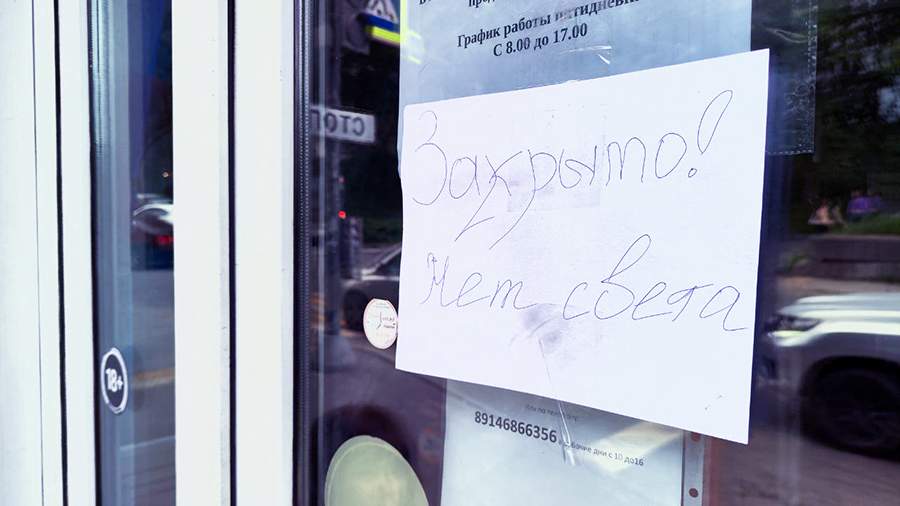 График работы пятидневк
С 8.00 до 17.00
СТОП
Закрыто!
Нет света
18+
89146866356
рабочие дни с 10 до 16